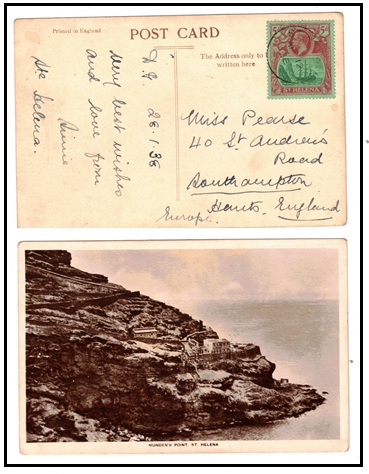 Printed in England
POST CARD
The Address only to
written here
28-1-36
very best wishes
and love from
St Helena.
ST. HELENA
Miss Pearse
40 St Andrew's
Road
Southampton
Hants. England
Europe.
MUNDEN'S POINT, ST. HELENA